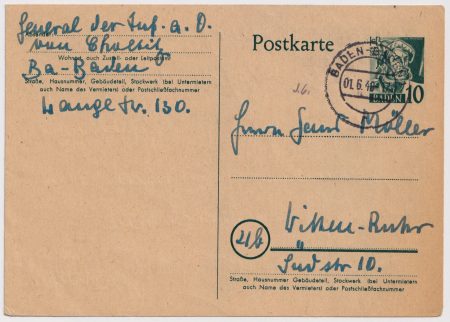 General der Inf. a. D.
von Choltitz
Ba-Baden
Wohnort, auch Zustell- oder Leitpostamt
Straße, Hausnummer, Gebäudeteil, Stockwerk (bei Untermietern
auch Name des Vermieters) oder Postschließfachnummer
Lange Str. 130.
Postkarte
BADEN-BADEN
01.6.4
BADEN 10
Herrn Gerd Möller
21b
Witten-Ruhr
Südstr 10.
Straße, Hausnummer, Gebäudeteil, Stockwerk (bei Untermietern
auch Name des Vermieters) oder Postschließfachnummer